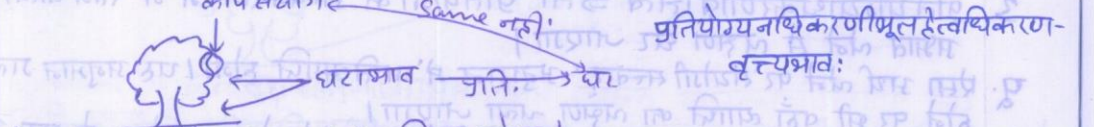 कपिसंयोग
Same नहीं!
घटाभाव प्रति. घट
प्रतियोग्यनधिकरणीभूतहेत्वधिकरण-
वृत्त्यभावः